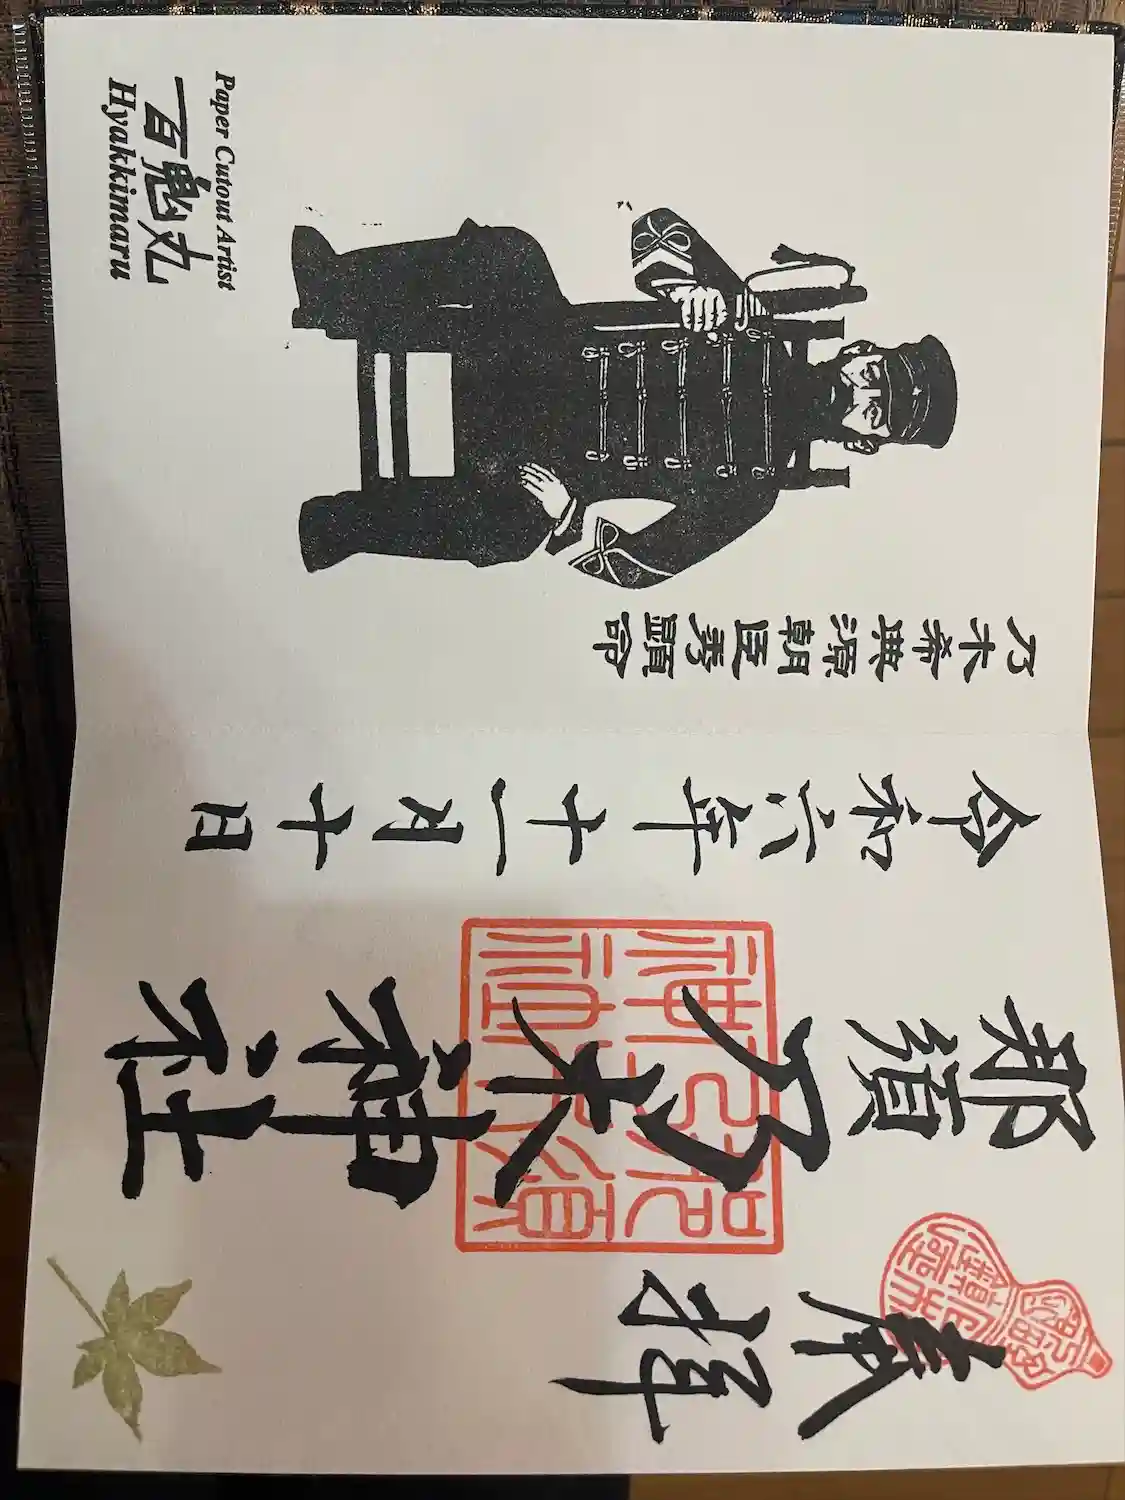 奉拝
那須乃木神社
令和六年十一月十日
乃木希典源朝臣秀顯命
Paper Cutout Artist
百鬼丸
Hyakkimaru